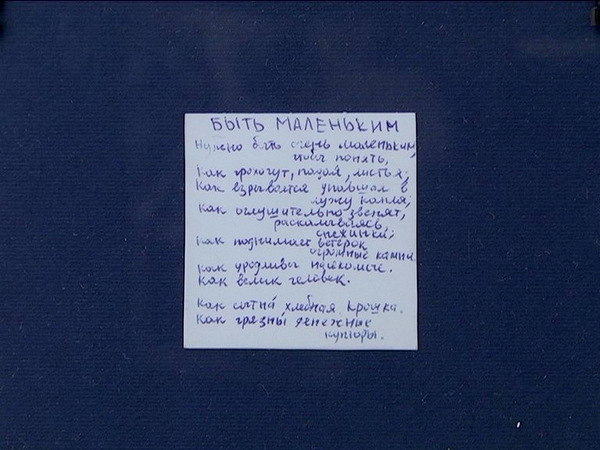 БЫТЬ МАЛЕНЬКИМ
Нужно быть очень маленьким,
чтобы понять,
Как грохочут, падая, листья;
Как взрывается упавшая в
лужу капля;
Как оглушительно звенят,
раскалываясь,
снежинки;
Как поднимает ветерок
огромные камни.
Как уродливы насекомые.
Как велик человек.
Как сытна́ хлебная крошка.
Как грязны денежные
купюры.